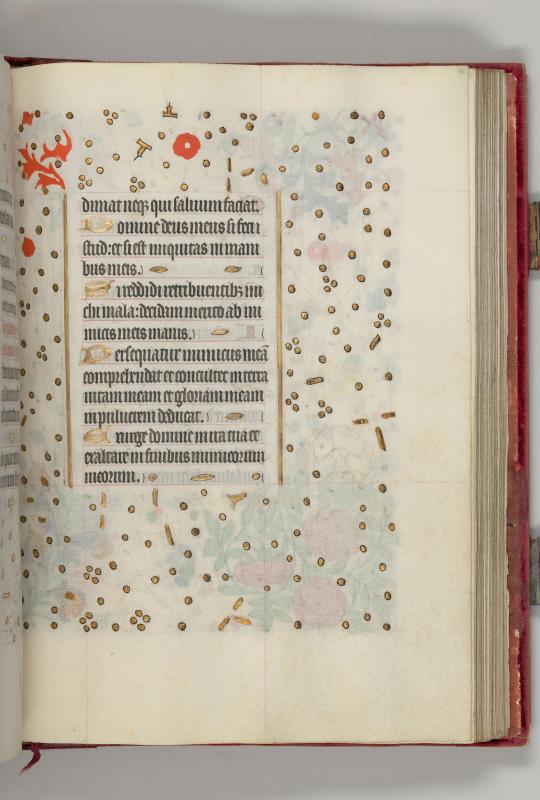 dimat neqz qui saluum faciat.
Domine deus meus si feci
istud: et si est iniquitas in mani
bus meis.
Si reddidi retribuentibz mi
chi mala: decidam merito ab ini
micis meis inanis.
Persequatur inimicus meā
comprehendat et conculcet in terra
uitam meam et gloriam meam
in puluerem deducat.
Exurge domine in ira tua et
exaltare in finibus inimicorum
meorum.